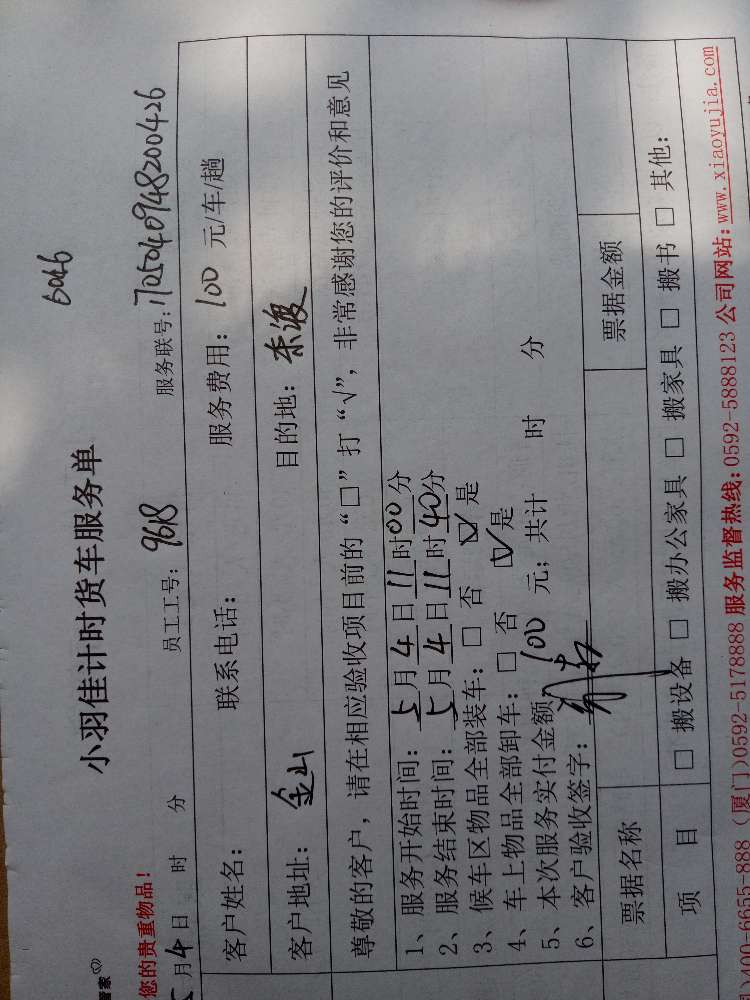 6046
管家
小羽佳计时货车服务单
您的贵重物品!
5月4日 时 分 员工工号: 9618 服务联号: 170504094820 0426
客户姓名: 联系电话: 服务费用: 100 元/车/趟
客户地址: 金山 目的地: 东渡
尊敬的客户，请在相应验收项目前的“□”打“√”，非常感谢您的评价和意见
1、服务开始时间: 5月4日11时00分
2、服务结束时间: 5月4日11时40分
3、候车区物品全部装车: □ 否 ☑ 是
4、车上物品全部卸车: □ 否 ☑ 是
5、本次服务实付金额 100 元; 共计 时 分
6、客户验收签字:
票据名称 票据金额
项 目 □ 搬设备 □ 搬办公家具 □ 搬家具 □ 搬书 □ 其他:
400-6655-888 (厦门)0592-5178888 服务监督热线: 0592-5888123 公司网站: www.xiaoyujia.com